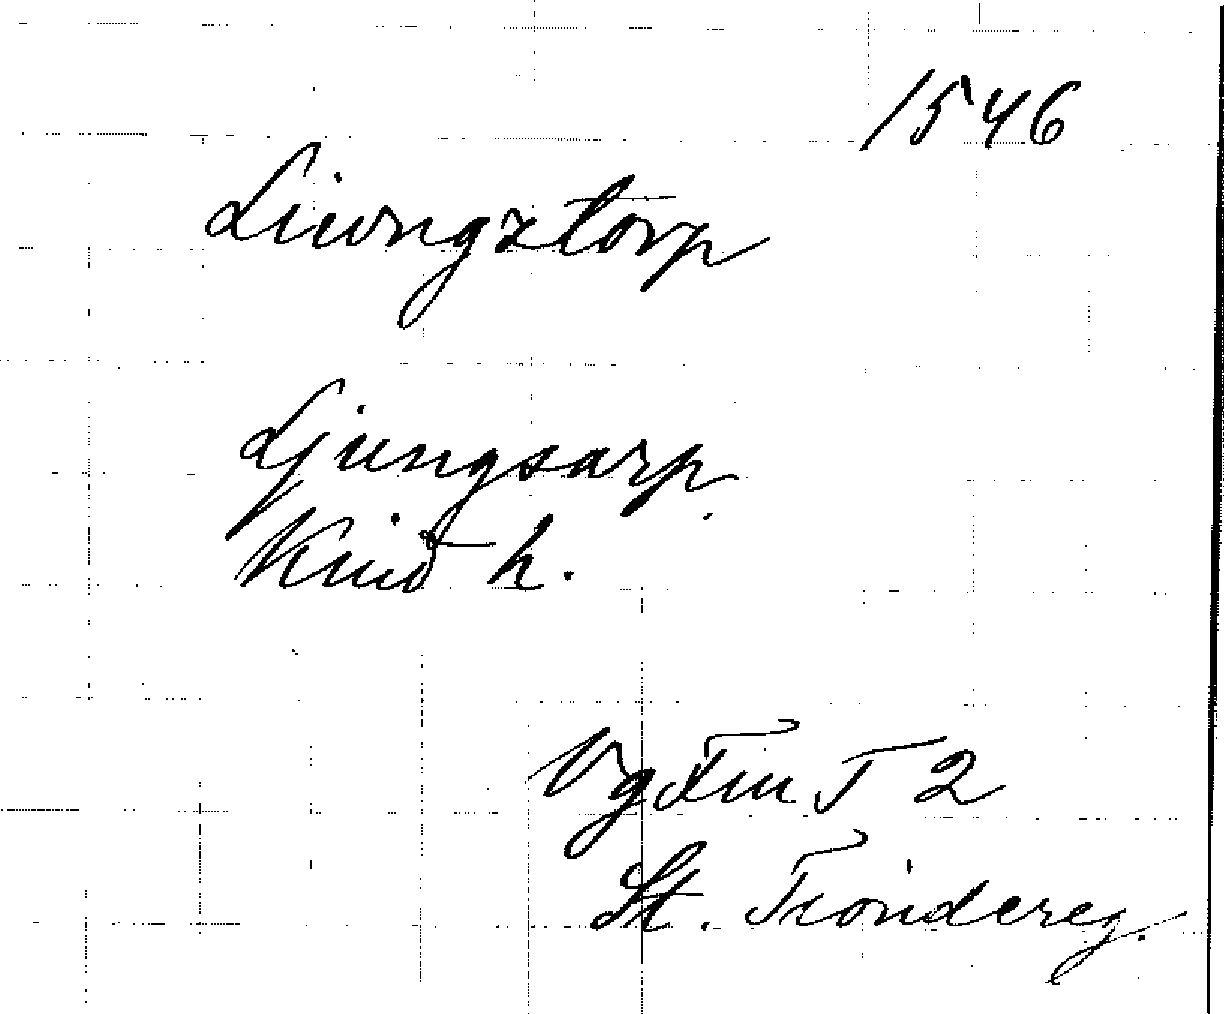 1546
Liwngztorp
Ljungsarp
Kind h.
Vg T 2
St. Tiondereg.